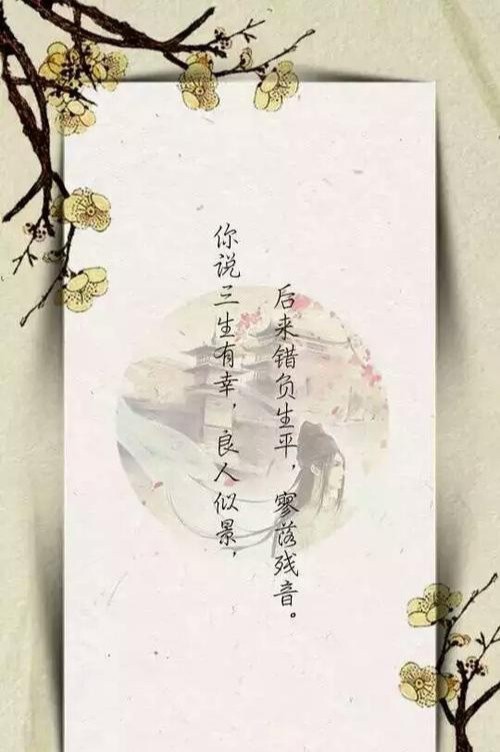 你说三生有幸，良人似景，
后来错负生平，寥落残音。